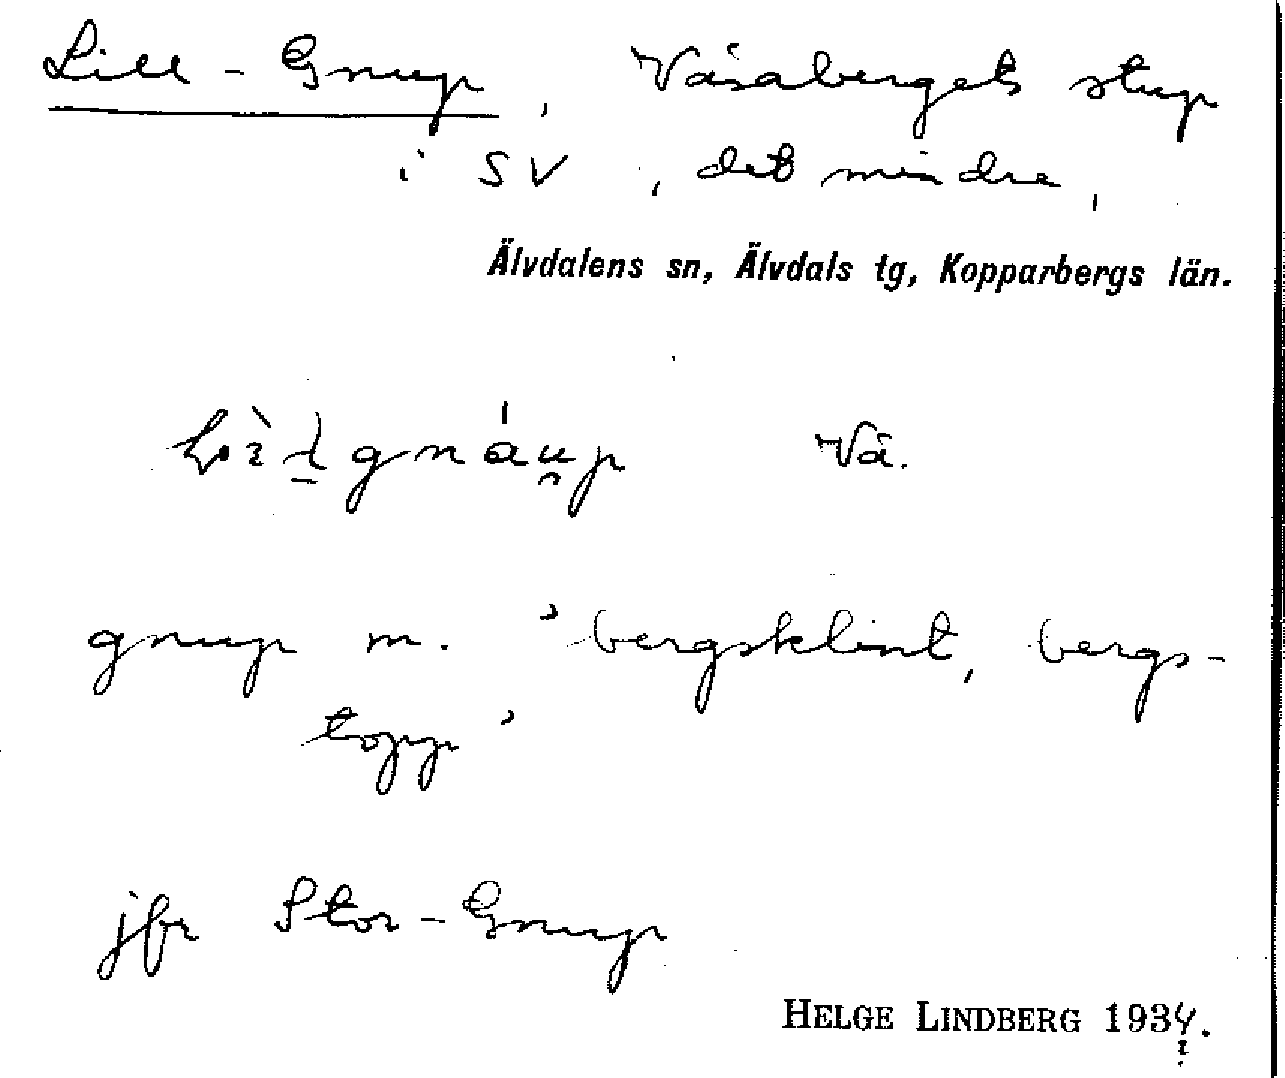 Lill-Gnup, Våsabergets stup
i SV, det mindre,
Älvdalens sn, Älvdals tg, Kopparbergs län.
Vå.
gnup m. 'bergsklint, bergs-
topp'
jfr Stor-Gnup
HELGE LINDBERG 1934.